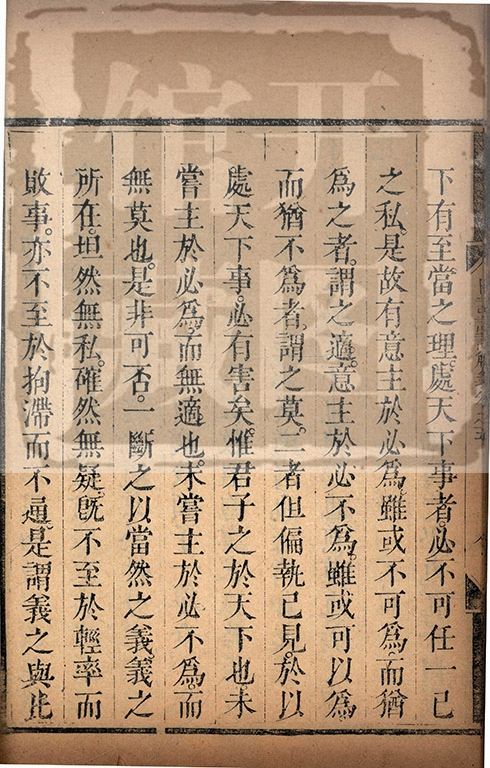 下有至當之理。處天下事者。必不可任一己
之私。是故有意主於必為。雖或不可為。而猶
為之者。謂之適。意主於必不為。雖或可以為
而猶不為者。謂之莫。二者但偏執己見。於以
處天下事。必有害矣。惟君子之於天下也。未
嘗主於必為。而無適也。未嘗主於必不為。而
無莫也。是非可否。一斷之以當然之義。義之
所在。坦然無私。確然無疑。既不至於輕率而
敗事。亦不至於拘滯而不通。是謂義之與比